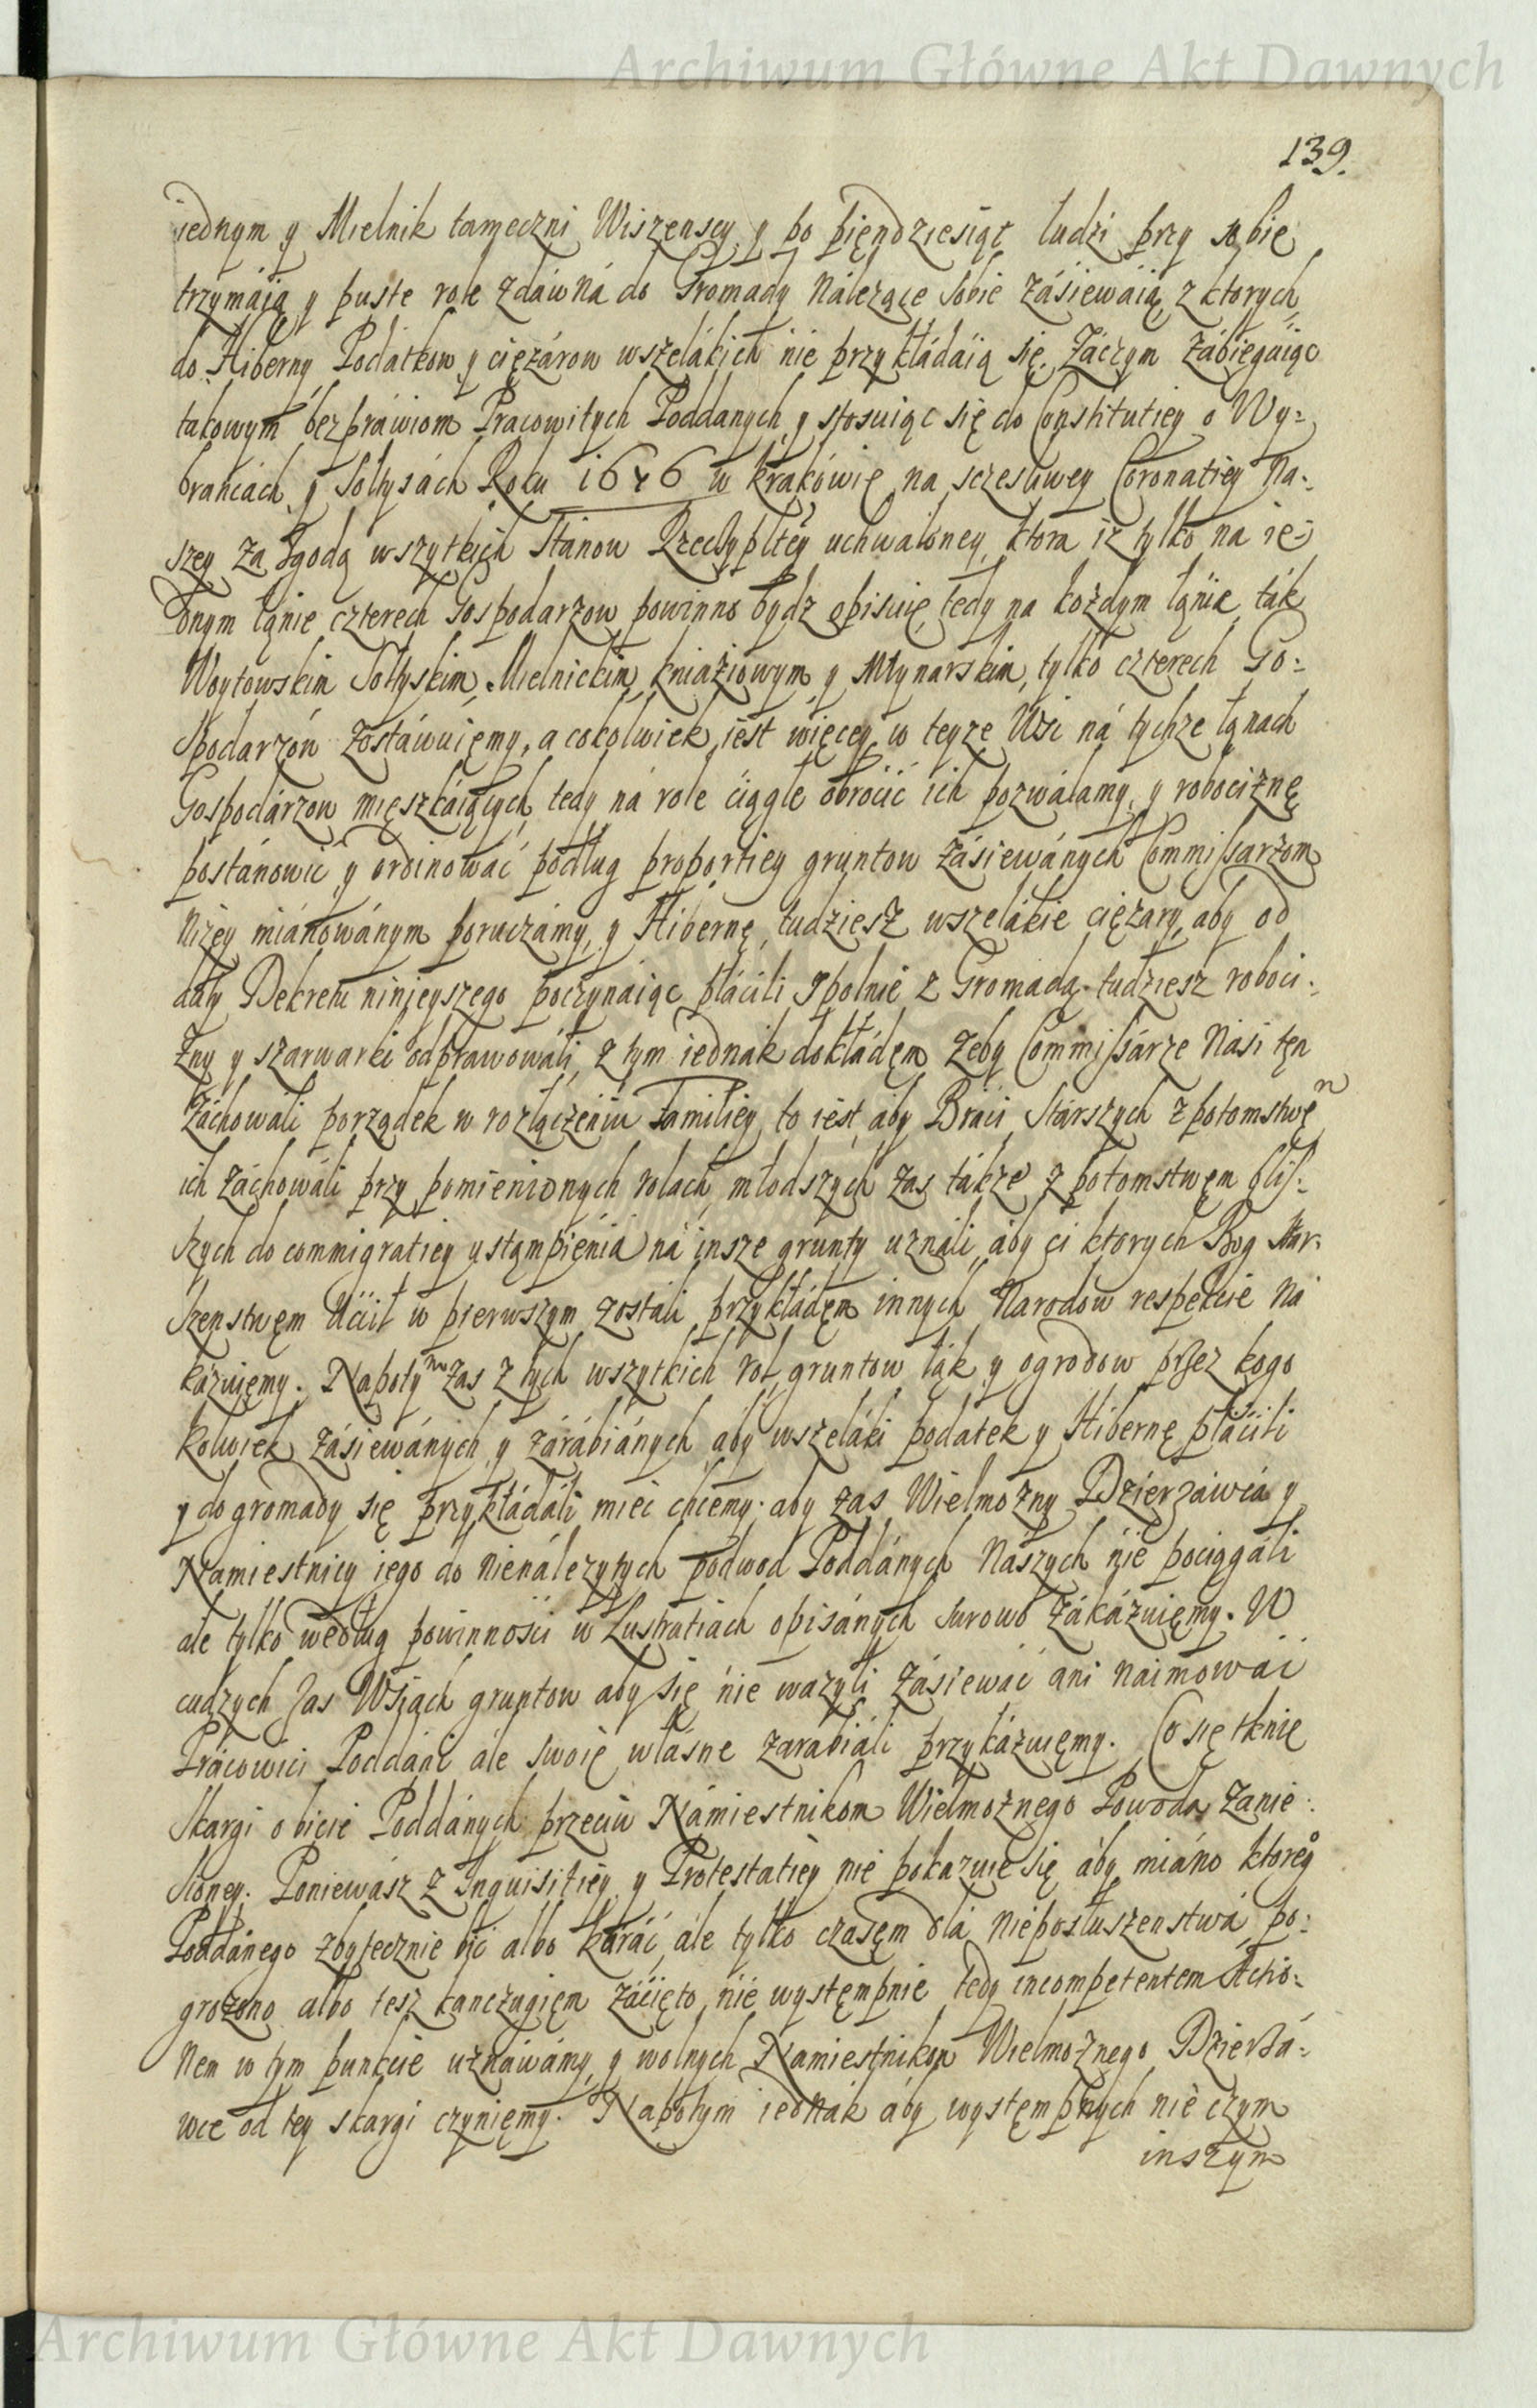 Archiwum Główne Akt Dawnych
139.
iednym y Mielnik tameczni Wiszenscy y po pięndziesiąt ludzi przy sobie
trzymáią y puste role zdawná do Gromady Należące sobie zásiewáią, z ktorych
do Hiberny Podatkow y ciężárow wszelákich nie przykłádáią się. Záczym zábiegáiąc
takowym bezpráwiom Pracowitych Poddanych, y stosuiąc się do Constitutiey o Wy-
brańcách y Sołtysách Roku 1676 w krakówie na sczęsliwey Coronatiey Na-
szey za zgodą wszytkich Stanow Rzeczyplłtey uchwaloney, ktora iz tylko na ie-
dnym łanie czterech Gospodarzow powinno bydz opisuie, tedy na kożdym łanie, ták
Woytowskim Sołtyskim, Mielnickim, kniaziowym y Młynarskim, tylko czterech Go-
spodarzow zostáwuięmy, a cokolwiek iest więcey w teyze Wsi ná tychże łanach
Gospodárzow mięszkáiących, tedy ná role ciągłe obrocić ich pozwálamy, y robociznę
postánowic y ordinować podług proportiey gruntow zásiewánych Commissarzom
Niżey miánowánym poruczámy, y Hibernę, tudziesz wszelákie ciężary, aby od
daty Dekretu ninieyszego poczynáiąc płácili spolnie z Gromadą, tudziesz roboci-
zny y szarwarki odprawowáli, z tym iednák dokłádem zeby Commissárze Nasi ten
záchowáli porządek w rozłączeniu Familiey, to iest, aby Bráci Stárszych z potomstwęm
ich záchowáli przy pomienionych rolach, młodszych zas tákze z potomstwęm bliż-
szych do commigratiey ystąmpieniá ná insze grunty uználi, áby ci ktorych Bog Stár-
szenstwęm ućcił w pierwszym zostáli przykłádęm innych Narodow respekcie Ná
kázuięmy. Napotym zas z tych wszytkich rol, gruntow łąk y ogrodow przez kogo
kolwiek zásiewánych y zárábiánych, aby wszeláki podatek y Hibernę płácili
y do gromady się przykłádáli mieć chcemy. aby zas Wielmożny Dzierżáwcá y
Namiestnicy iego do nienależytych podwod Poddánych Nászych nie pociągáli
ale tylko według powinności w Lustratiách opisánych surowo zákázuięmy. W
cudzych zas Wsiach gruntow aby się nie wazyli zásiewáć ani naimować
Prácowici Poddáni ále swoie włásne zarabiáli przykázuięmy. Co się tknie
Skargi o bicie Poddánych przeciw Námiestnikom Wielmożnego Powoda zanie-
sioney. Poniewász z Inquisitiey y Protestatiey nie pokazuie się áby miáno ktoreg°
Poddánego zbytecznie bić albo karáć, ále tylko czasęm dlá nieposłuszenstwá po-
grożono albo tesz kanczugięm záćięto nie występnie, tedy incompetentem Actio-
nem w tym puncie uznáwámy, y wolnych Namiestnikow Wielmożnego Dzierżá-
wce od tey skargi czynięmy. Napotym iednák aby występnych nie czym
inszym
Archiwum Główne Akt Dawnych